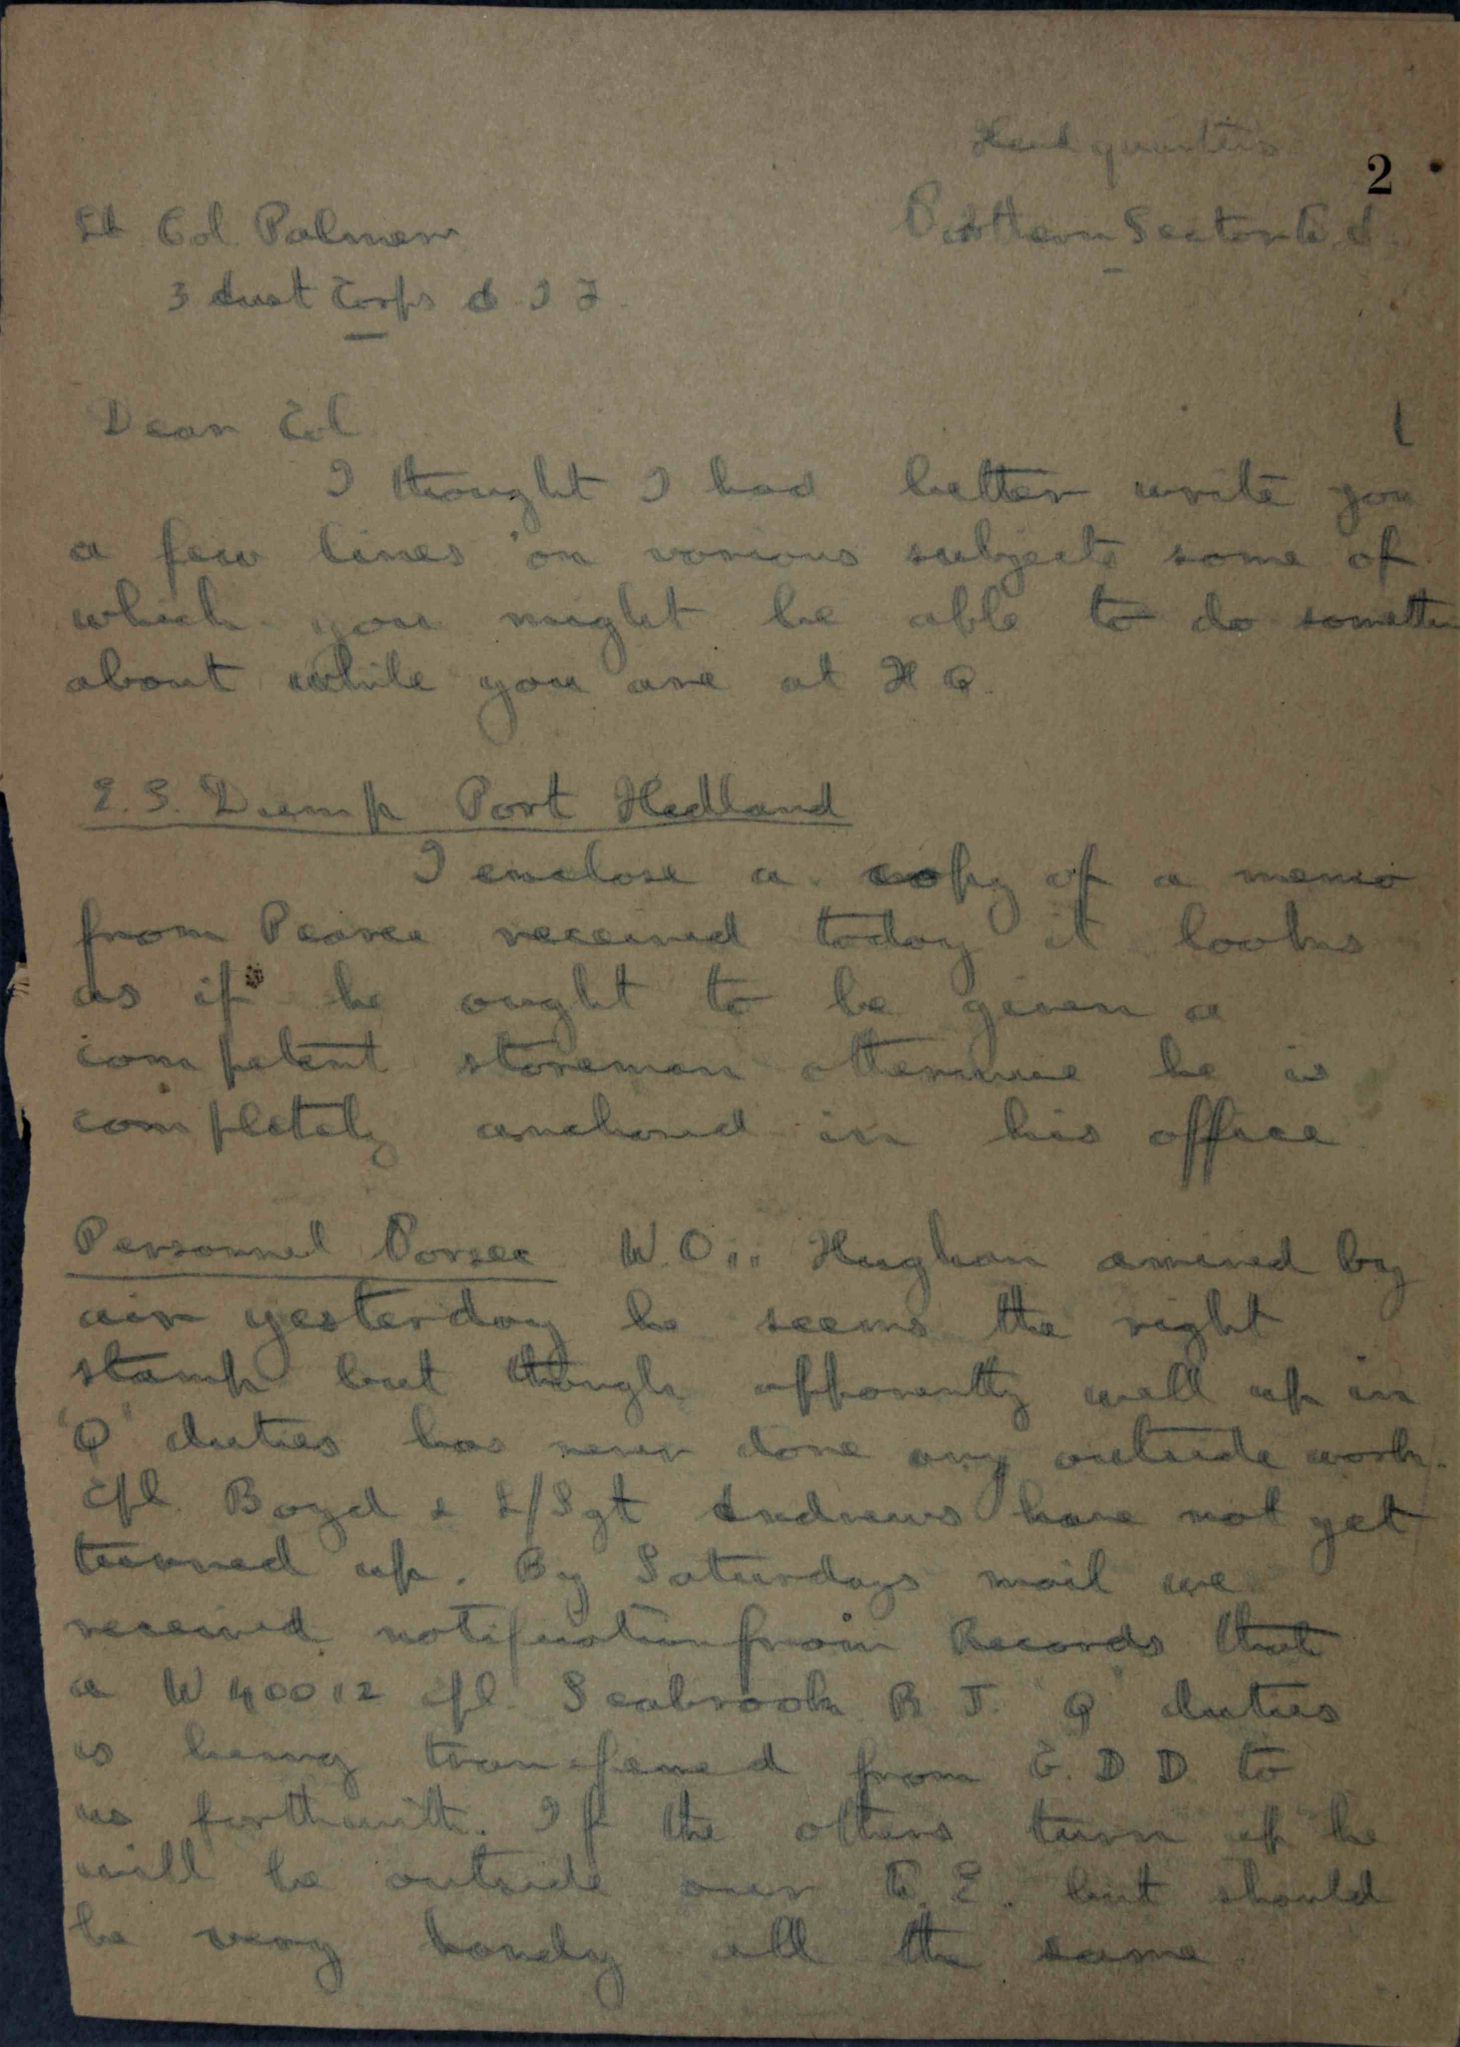 Headquarters
2
Lt Col. Palmer
Northern Sector W.A.
3 Aust Corps A I F.
Dear Col
I thought I had better write you
a few lines on various subjects some of
which you might be able to do somethin
about while you are at H Q.
E. S. Dump Port Hedland
I enclose a copy of a memo
from Pearce received today it looks
as if he ought to be given a
competent storeman otherwise he is
completely anchored in his office
Personnel W.O" Hughan arrived by
air yesterday he seems the right
stamp but though apparently well up in
"Q" duties has never done any outside work.
Cpl. Boyd & L/Sgt Andrews have not yet
turned up. By Saturdays mail we
received notification from Records that
a W 40012 Cpl. Seabrook R J. "Q" duties
is being transferred from G. D D. to
us forthwith. If the others turn up he
will be outside our W. E. but should
be very handy all the same.